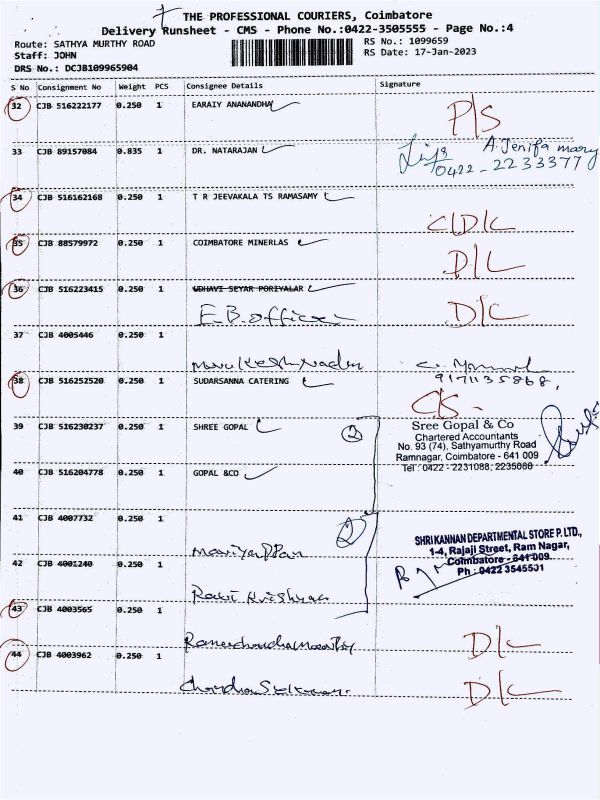 7
THE PROFESSIONAL COURIERS, Coimbatore
Delivery Runsheet - CMS - Phone No.:0422-3505555 - Page No.:4
Route: SATHYA MURTHY ROAD
Staff: JOHN
DRS No.: DCJB109965904
RS No.: 1099659
RS Date: 17-Jan-2023
S No Consignment No Weight PCS Consignee Details Signature
32 CJB 516222177 0.250 1 EARAIY ANANANDHA P/S
33 CJB 89157084 0.835 1 DR. NATARAJAN A. Jenifa mary
0422 - 2233377
34 CJB 516162168 0.250 1 T R JEEVAKALA TS RAMASAMY C/D/L
35 CJB 88579972 0.250 1 COIMBATORE MINERLAS D/L
36 CJB 516223415 0.250 1 UDHAVI SEYAR PORIYALAR D/C
E.B. office
37 CJB 4005446 0.250 1
9171135868,
38 CJB 516252520 0.250 1 SUDARSANNA CATERING C/S -
39 CJB 516230237 0.250 1 SHREE GOPAL 2
Sree Gopal & Co
Chartered Accountants
No. 93 (74), Sathyamurthy Road
Ramnagar, Coimbatore - 641 009
Tel : 0422 - 2231088, 2235088
40 CJB 516204778 0.250 1 GOPAL &CO
41 CJB 4007732 0.250 1 2
Mariyappan
SHRI KANNAN DEPARTMENTAL STORE P. LTD.,
1-4, Rajaji Street, Ram Nagar,
Coimbatore - 641 009
Ph : 0422 3545501
42 CJB 4001240 0.250 1
Ravi Krishnan
43 CJB 4003565 0.250 1
Ramachandramoorthy D/L
44 CJB 4003962 0.250 1
D/L